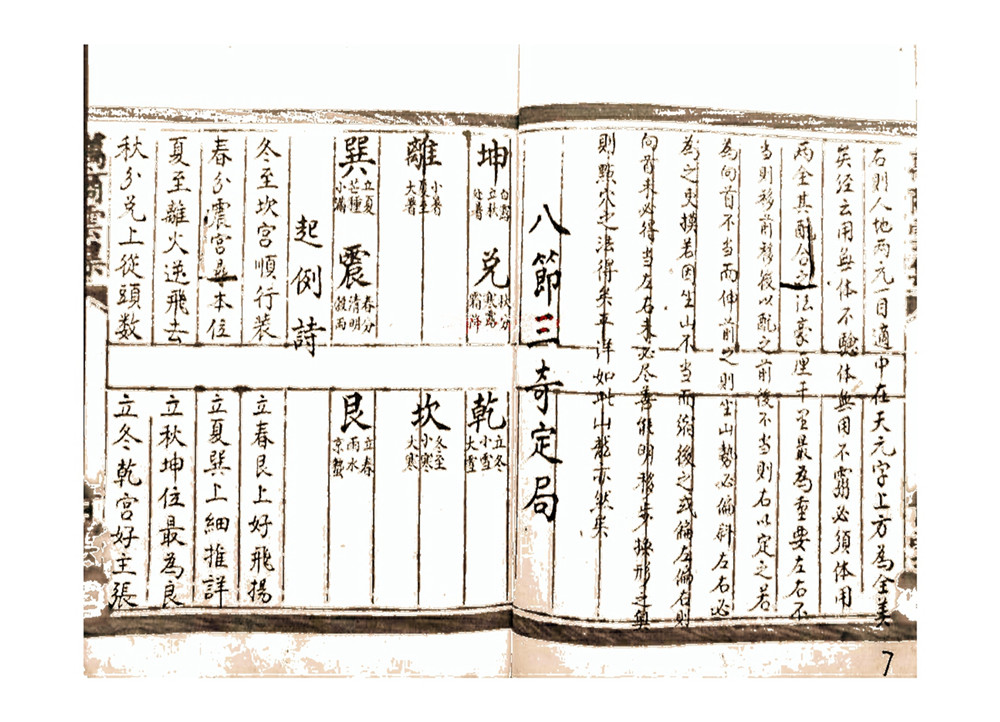 右則人地兩元一目適中在天元字上方為全美
矣經云用無体不驗体無用不靈必須体用
兩全其配合之法豪厘千里最為重要左右不
當則移前移後以配之前後不當則右以定之若
為向首不当而伸前之則坐山勢必偏斜左右必
為之更摸若因坐山不当而縮後之或偏左偏右則
向首未必得当左右未必尽善能明移步換形之奧
則點穴之法得矣平洋如此山龍亦然矣
八節三奇定局
坤
白露
立秋
處暑
兌
秋分
寒露
霜降
乾
立冬
小雪
大雪
離
小暑
夏至
大暑
坎
冬至
小寒
大寒
巽
立夏
芒種
小滿
震
春分
清明
穀雨
艮
立春
雨水
京蟄
起例詩
冬至坎宮順行裝
立春艮上好飛揚
春分震宮尋本位
立夏巽上細推詳
夏至離火逆飛去
立秋坤位最為良
秋分兌上從頭数
立冬乾宮好主張
7